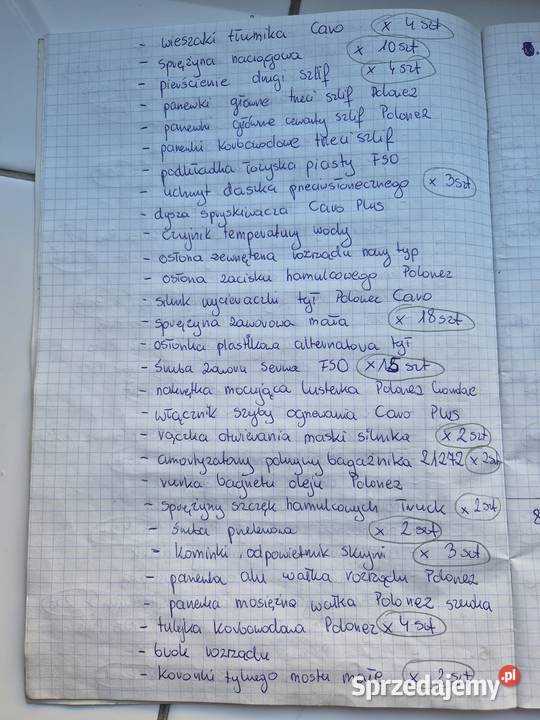 - wieszaki tłumika Caro x 4 szt
- sprężyna naciągowa x 10 szt
- pierścienie drugi szlif x 4 szt
- panewki główne trzeci szlif Polonez
- panewki główne czwarty szlif Polonez
- panewki korbowodowe trzeci szlif
- podkładka łożyska piasty FSO
- uchwyt daszka przeciwsłonecznego x 3 szt
- dysza spryskiwacza Caro Plus
- czujnik temperatury wody
- osłona zewnętrzna rozrządu nowy typ
- osłona zacisku hamulcowego Polonez
- silnik wycieraczki tył Polonez Caro
- sprężyna zaworowa mała x 18 szt
- osłonka plastikowa alternatora tył
- śruba zaworu serwa FSO x 15 szt
- nakrętka mocująca lusterka Polonez
- włącznik szyby ogrzewania Caro Plus
- rączka otwierania maski silnika x 2 szt
- amortyzatory pokrywy bagażnika 21272 x 2szt
- rurka bagnetu oleju Polonez
- sprężyny szczęk hamulcowych Truck x 2szt
- śruba przelewowa x 2 szt
- kominki, odpowietrznik skrzyni x 3 szt
- panewka alu wałka rozrządu Polonez
- panewka mosiężna wałka Polonez szeroka
- tulejka korbowodowa Polonez x 4 szt
- blok rozrządu
- koronki tylnego mostu małe x 2 szt
8
Sprzedajemy.pl